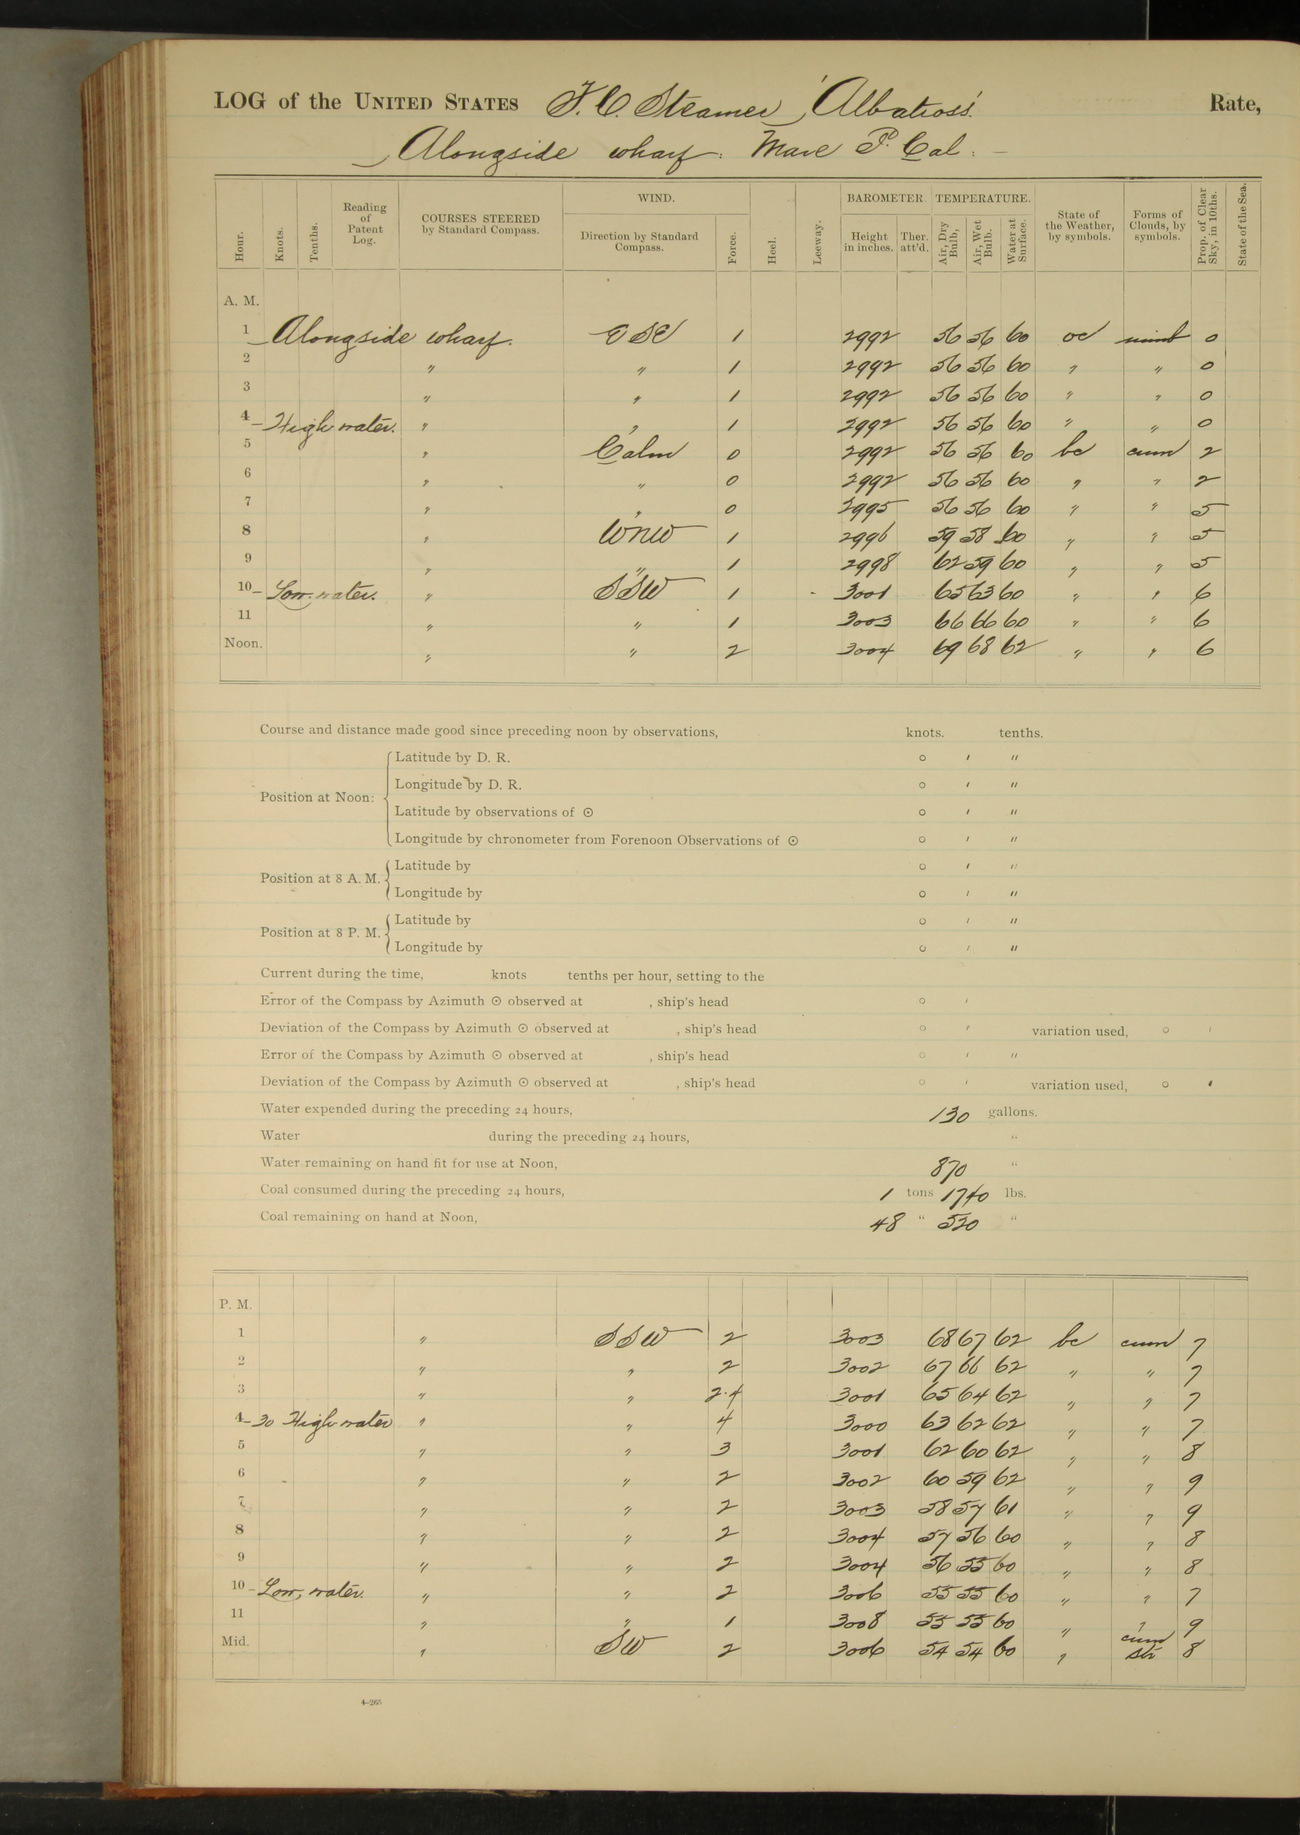 LOG of the UNITED STATES F. C. Steamer 'Albatross'. Rate,
Alongside wharf. Mare Id. Cal: —
Hour. Knots. Tenths. Reading of Patent Log. COURSES STEERED by Standard Compass. WIND. Direction by Standard Compass. Force. Heel. Leeway. BAROMETER. Height in inches. Ther. att'd. TEMPERATURE. Air, Dry Bulb, Air, Wet Bulb. Water at Surface. State of the Weather, by symbols. Forms of Clouds, by symbols. Prop. of Clear Sky, in 10ths. State of the Sea.
A. M.
1 Alongside wharf. ESE 1 2992 56 56 60 oc nimb 0
2 " " 1 2992 56 56 60 " " 0
3 " " 1 2992 56 56 60 " " 0
4 – High water. " " 1 2992 56 56 60 " " 0
5 " Calm 0 2992 56 56 60 bc cum 2
6 " " 0 2992 56 56 60 " " 2
7 " " 0 2995 56 56 60 " " 5
8 " WNW 1 2996 59 58 60 " " 5
9 " " 1 2998 62 59 60 " " 5
10 – Low water. " SSW 1 3001 65 63 60 " " 6
11 " " 1 3003 66 66 60 " " 6
Noon. " " 2 3004 69 68 62 " " 6
Course and distance made good since preceding noon by observations, knots. tenths.
Position at Noon: Latitude by D. R. ° ' "
Longitude by D. R. ° ' "
Latitude by observations of ☉ ° ' "
Longitude by chronometer from Forenoon Observations of ☉ ° ' "
Position at 8 A. M. Latitude by ° ' "
Longitude by ° ' "
Position at 8 P. M. Latitude by ° ' "
Longitude by ° ' "
Current during the time, knots tenths per hour, setting to the
Error of the Compass by Azimuth ☉ observed at , ship's head ° '
Deviation of the Compass by Azimuth ☉ observed at , ship's head ° ' variation used, ° '
Error of the Compass by Azimuth ☉ observed at , ship's head ° ' "
Deviation of the Compass by Azimuth ☉ observed at , ship's head ° ' variation used, ° '
Water expended during the preceding 24 hours, 130 gallons.
Water during the preceding 24 hours, "
Water remaining on hand fit for use at Noon, 870 "
Coal consumed during the preceding 24 hours, 1 tons 1740 lbs.
Coal remaining on hand at Noon, 48 " 520 "
P. M.
1 " SSW 2 3003 68 67 62 bc cum 7
2 " " 2 3002 67 66 62 " " 7
3 " " 2.4 3001 65 64 62 " " 7
4 – 30 High water " " 4 3000 63 62 62 " " 7
5 " " 3 3001 62 60 62 " " 8
6 " " 2 3002 60 59 62 " " 9
7 " " 2 3003 58 57 61 " " 9
8 " " 2 3004 57 56 60 " " 8
9 " " 2 3004 56 55 60 " " 8
10 – Low, water. " " 2 3006 55 55 60 " " 7
11 " " 1 3008 55 55 60 " " 9
Mid. " SW 2 3006 54 54 60 " cum str 8
4–265